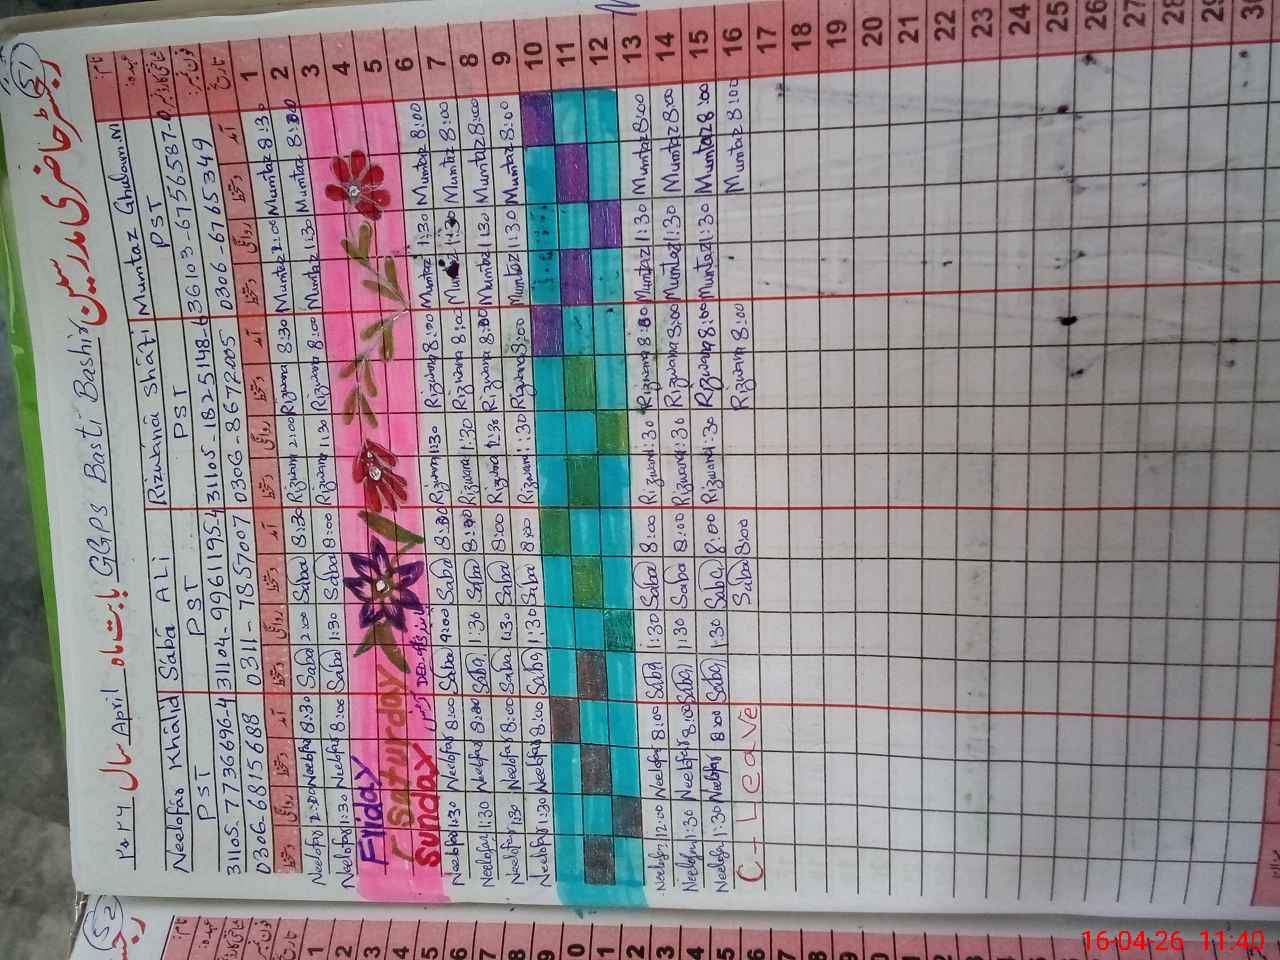 51
رجسٹر حاضری مدرسین GGPS Basti Bashir بابت ماہ April سال ۲۰۲۶
Neelofar Khalid Saba Ali Rizwana Shafi Mumtaz Ghulam.M نام:
PST PST PST PST عہدہ:
31105-7736696-4 31104-9961195-4 31105-1825148-6 36103-6756587-0
0306-6815688 0311-7857007 0306-8672005 0306-6765349
دستخط روانگی دستخط آمد دستخط روانگی دستخط آمد دستخط روانگی دستخط آمد دستخط روانگی دستخط آمد تاریخ
Neelofar 2:00 Neelofar 8:30 Saba 2:00 Saba 8:30 Rizwana 2:00 Rizwana 8:30 Mumtaz 2:00 Mumtaz 8:30 1
Neelofar 1:30 Neelofar 8:00 Saba 1:30 Saba 8:00 Rizwana 1:30 Rizwana 8:00 Mumtaz 1:30 Mumtaz 8:00 2
Friday 3
Saturday 4
Sunday 5
Neelofar 1:30 Neelofar 8:00 Saba 9:00 Saba 8:00 Rizwana 1:30 Rizwana 8:00 Mumtaz 1:30 Mumtaz 8:00 6
Neelofar 1:30 Neelofar 8:00 Saba 1:30 Saba 8:00 Rizwana 1:30 Rizwana 8:00 Mumtaz 1:30 Mumtaz 8:00 7
Neelofar 1:30 Neelofar 8:00 Saba 1:30 Saba 8:00 Rizwana 1:30 Rizwana 8:00 Mumtaz 1:30 Mumtaz 8:00 8
Neelofar 1:30 Neelofar 8:00 Saba 1:30 Saba 8:00 Rizwana 1:30 Rizwana 8:00 Mumtaz 1:30 Mumtaz 8:00 9
10
11
12
Neelofar 12:00 Neelofar 8:00 Saba 1:30 Saba 8:00 Rizwana 1:30 Rizwana 8:00 Mumtaz 1:30 Mumtaz 8:00 13
Neelofar 1:30 Neelofar 8:00 Saba 1:30 Saba 8:00 Rizwana 1:30 Rizwana 8:00 Mumtaz 1:30 Mumtaz 8:00 14
Neelofar 1:30 Neelofar 8:00 Saba 1:30 Saba 8:00 Rizwana 1:30 Rizwana 8:00 Mumtaz 1:30 Mumtaz 8:00 15
C-Leave Saba 8:00 Rizwana 8:00 Mumtaz 8:00 16
17
18
19
20
21
22
23
24
25
26
27
28
29
30
52
نام:
عہدہ:
تاریخ
1
2
3
4
5
6
7
8
9
16-04-26 11:40